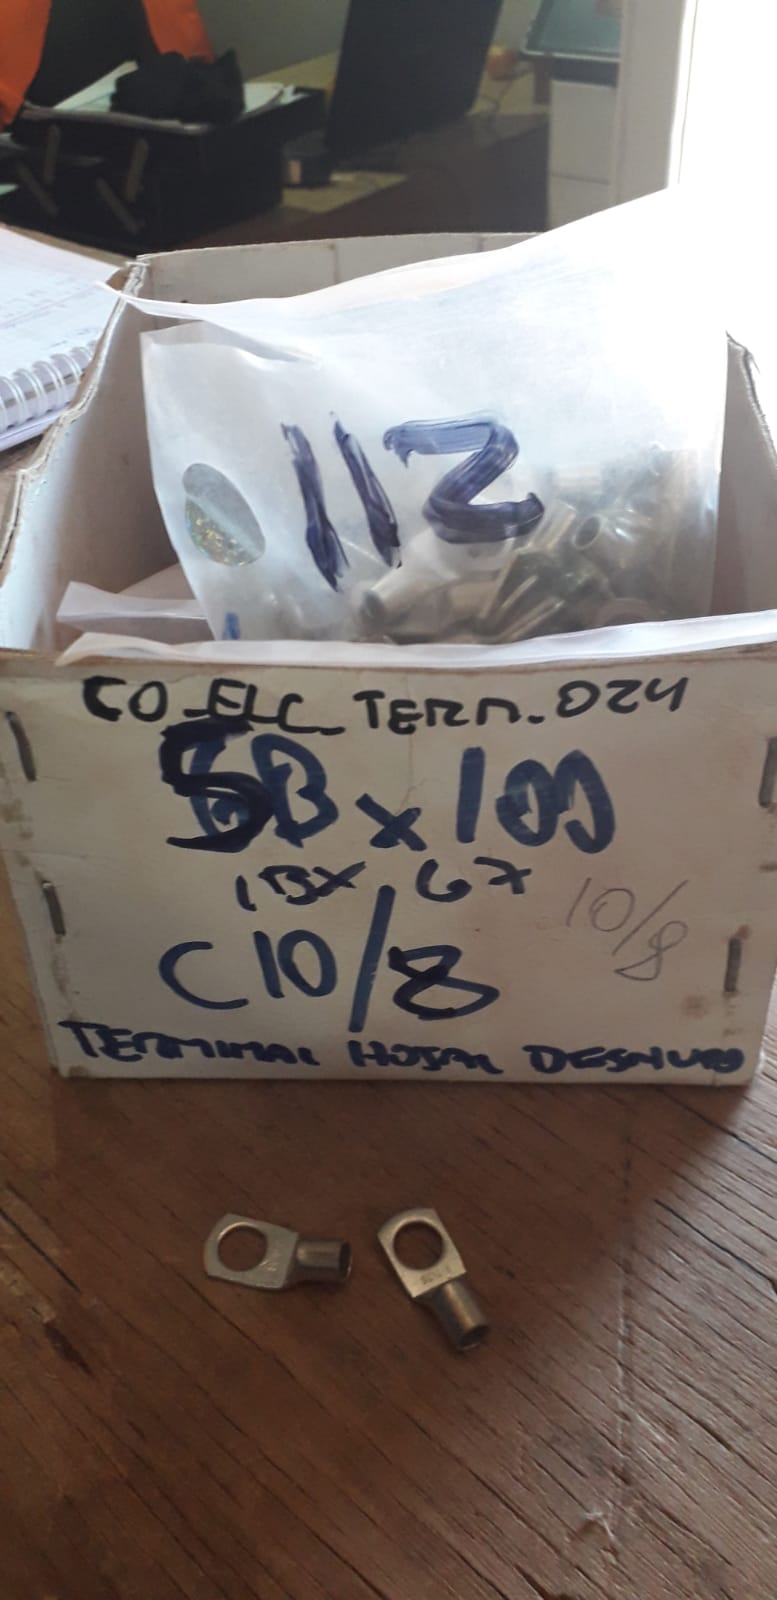 112
CO_ELC_TERM.024
5B x 100
1Bx 67
10/8
C10/8
TERMINAL HOJAL DESNUDO